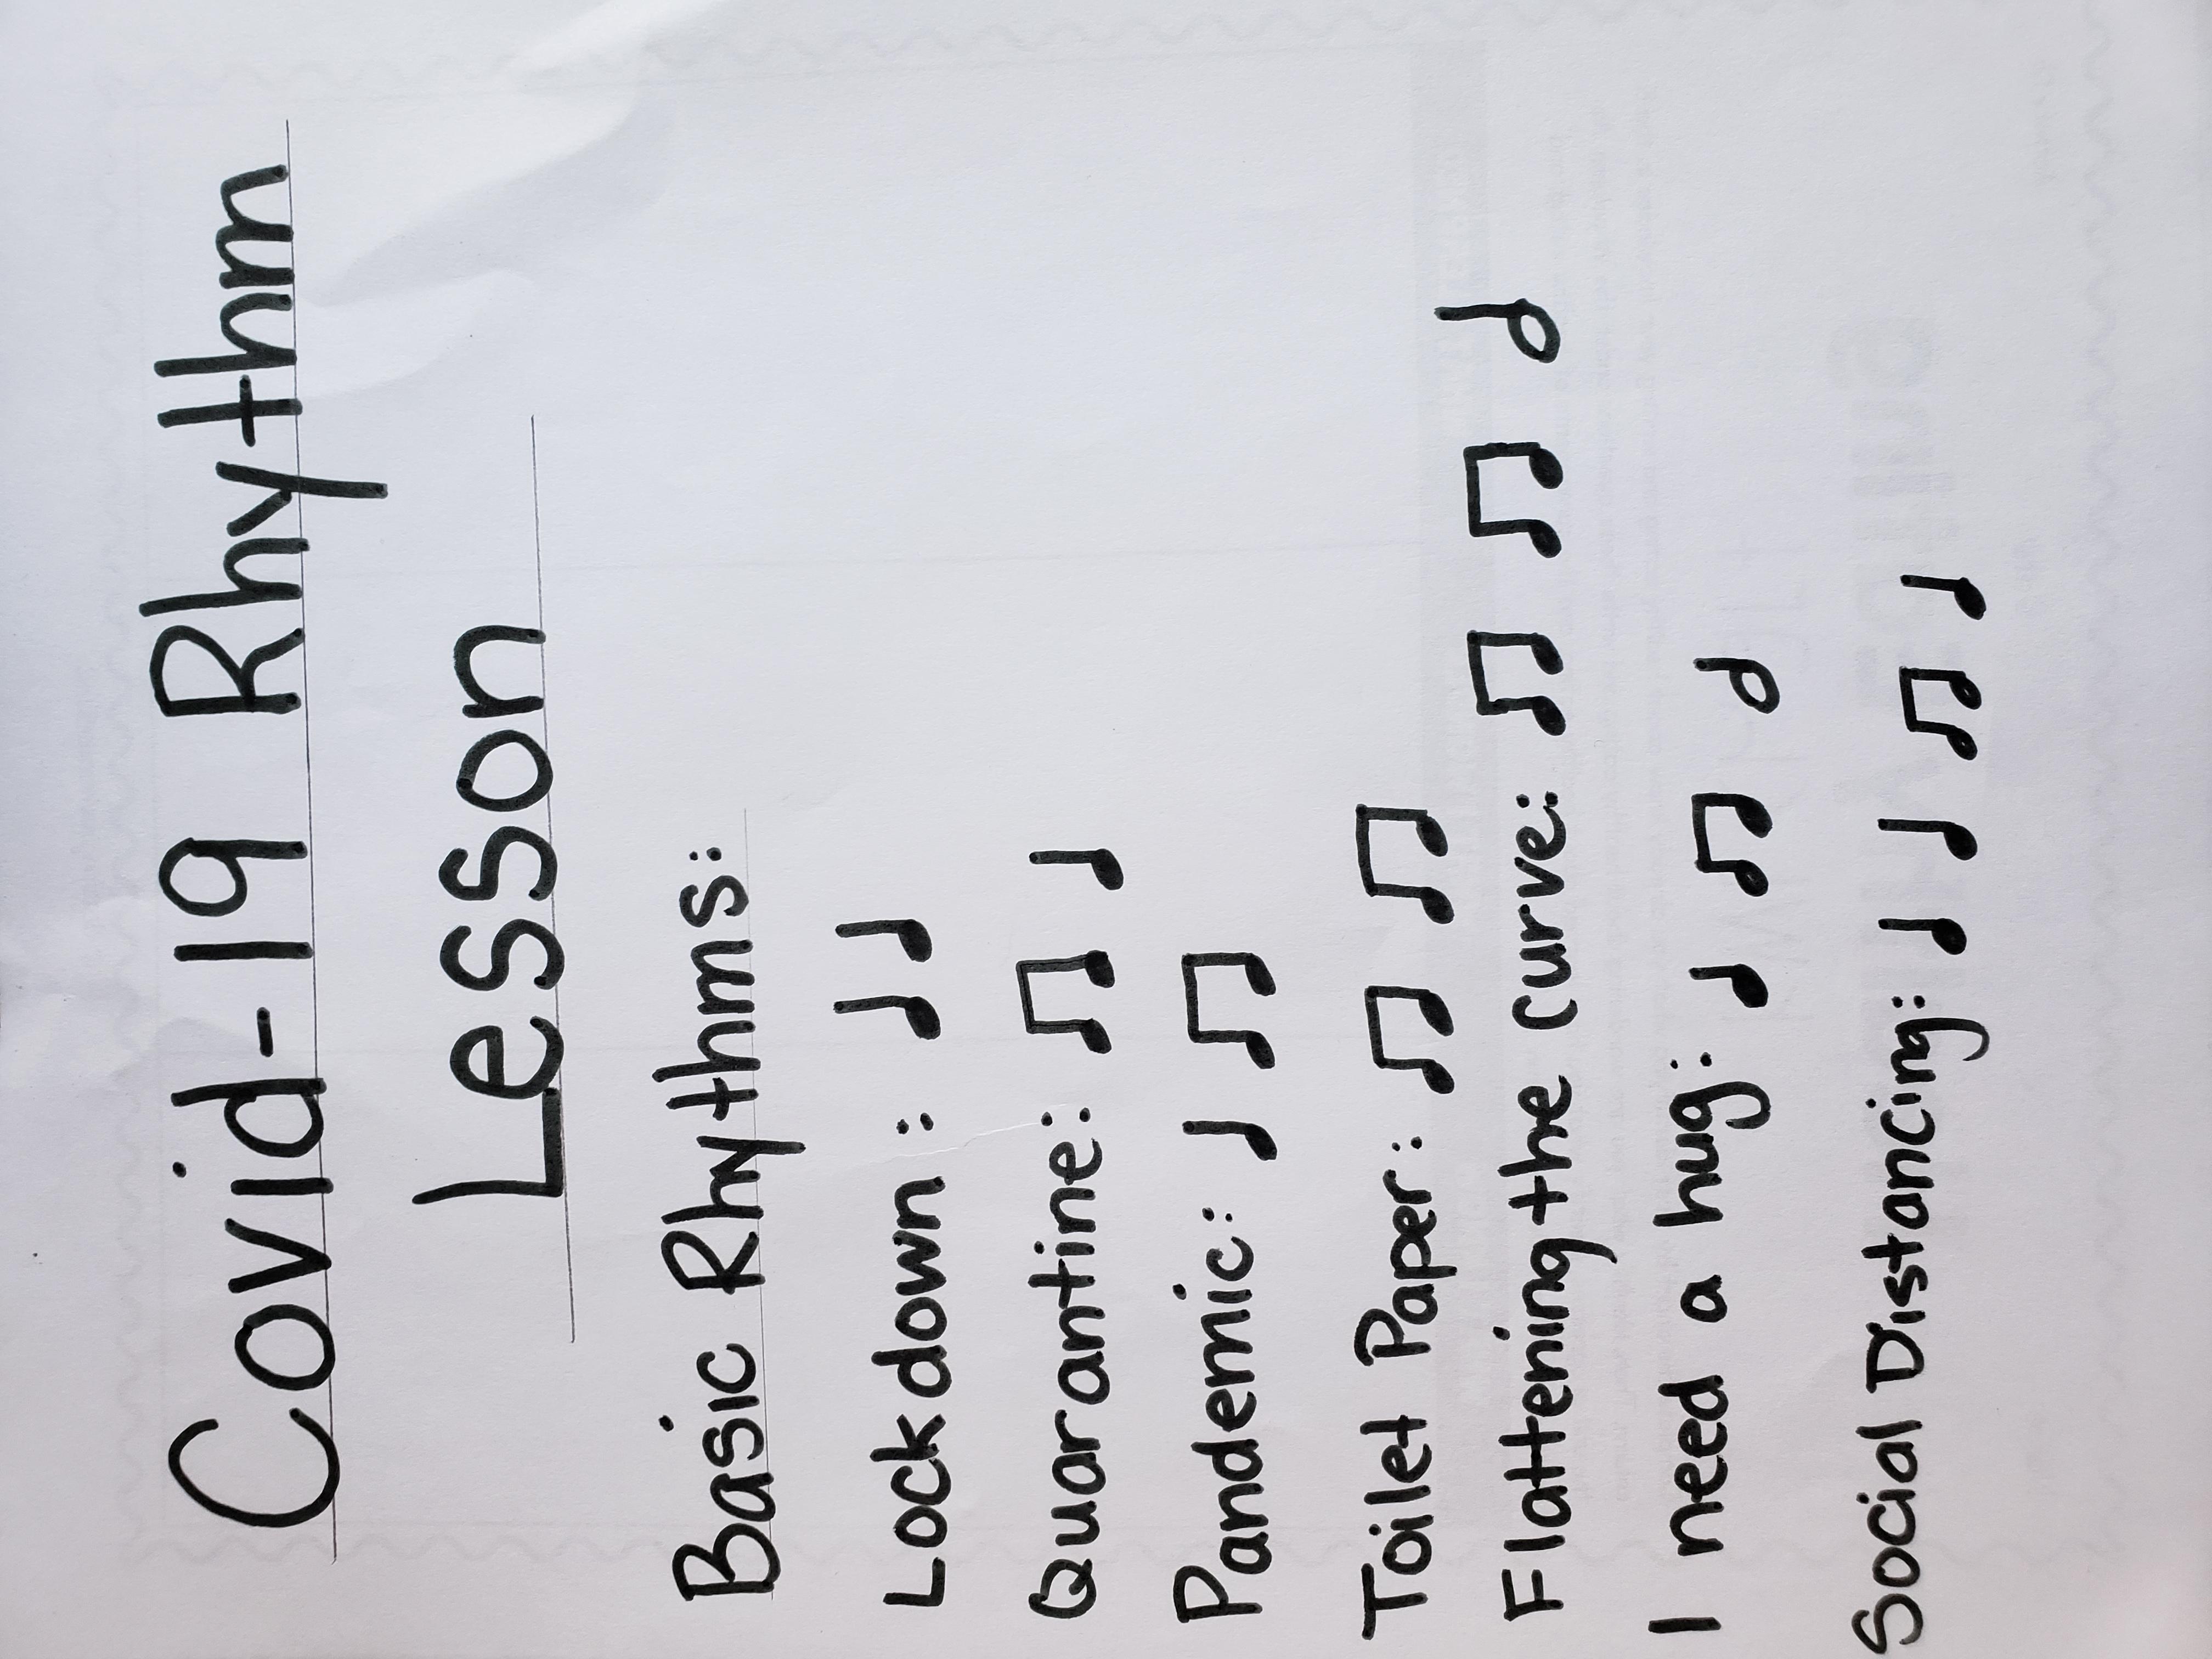 Covid-19 Rhythm
Lesson
Basic Rhythms:
Lockdown: ♩ ♩
Quarantine: ♫ ♩
Pandemic: ♩ ♫
Toilet Paper: ♫ ♫
Flattening the curve: ♫ ♫ 𝅗𝅥
I need a hug: ♩ ♫ 𝅗𝅥
Social Distancing: ♩ ♩ ♫ ♩